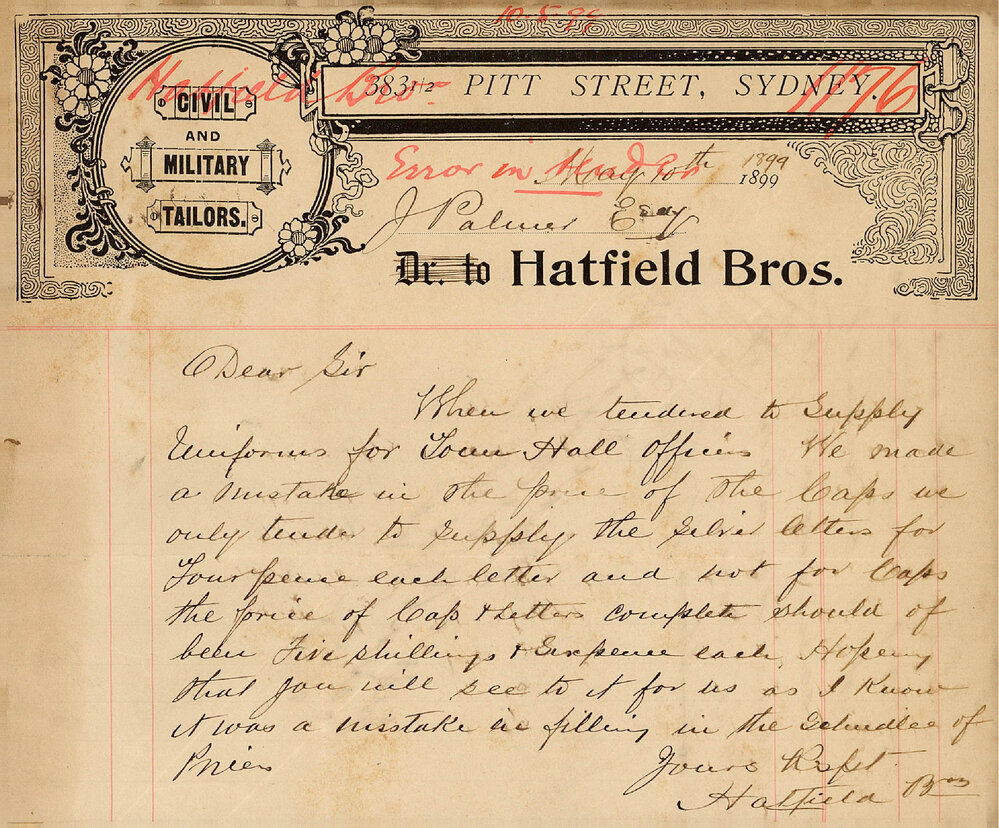 10-5-99
Hatfield Bros
1176
383 1/2 PITT STREET, SYDNEY.
CIVIL
AND
MILITARY
TAILORS.
Error in Tender
May 10th 1899
1899
J Palmer Esqy
Dr. to Hatfield Bros.
Dear Sir
When we tendered to Supply
Uniforms for Town Hall Officers We made
a mistake in the price of the Caps we
only tender to Supply the Silver letters for
Fourpence each letter and not for Caps
the price of Cap & Letters complete should of
been Five shillings & Sixpence each, Hopeing
that you will see to it for us as I know
it was a mistake in filling in the Schudlee of
Prices
Yours Respt
Hatfield Bros